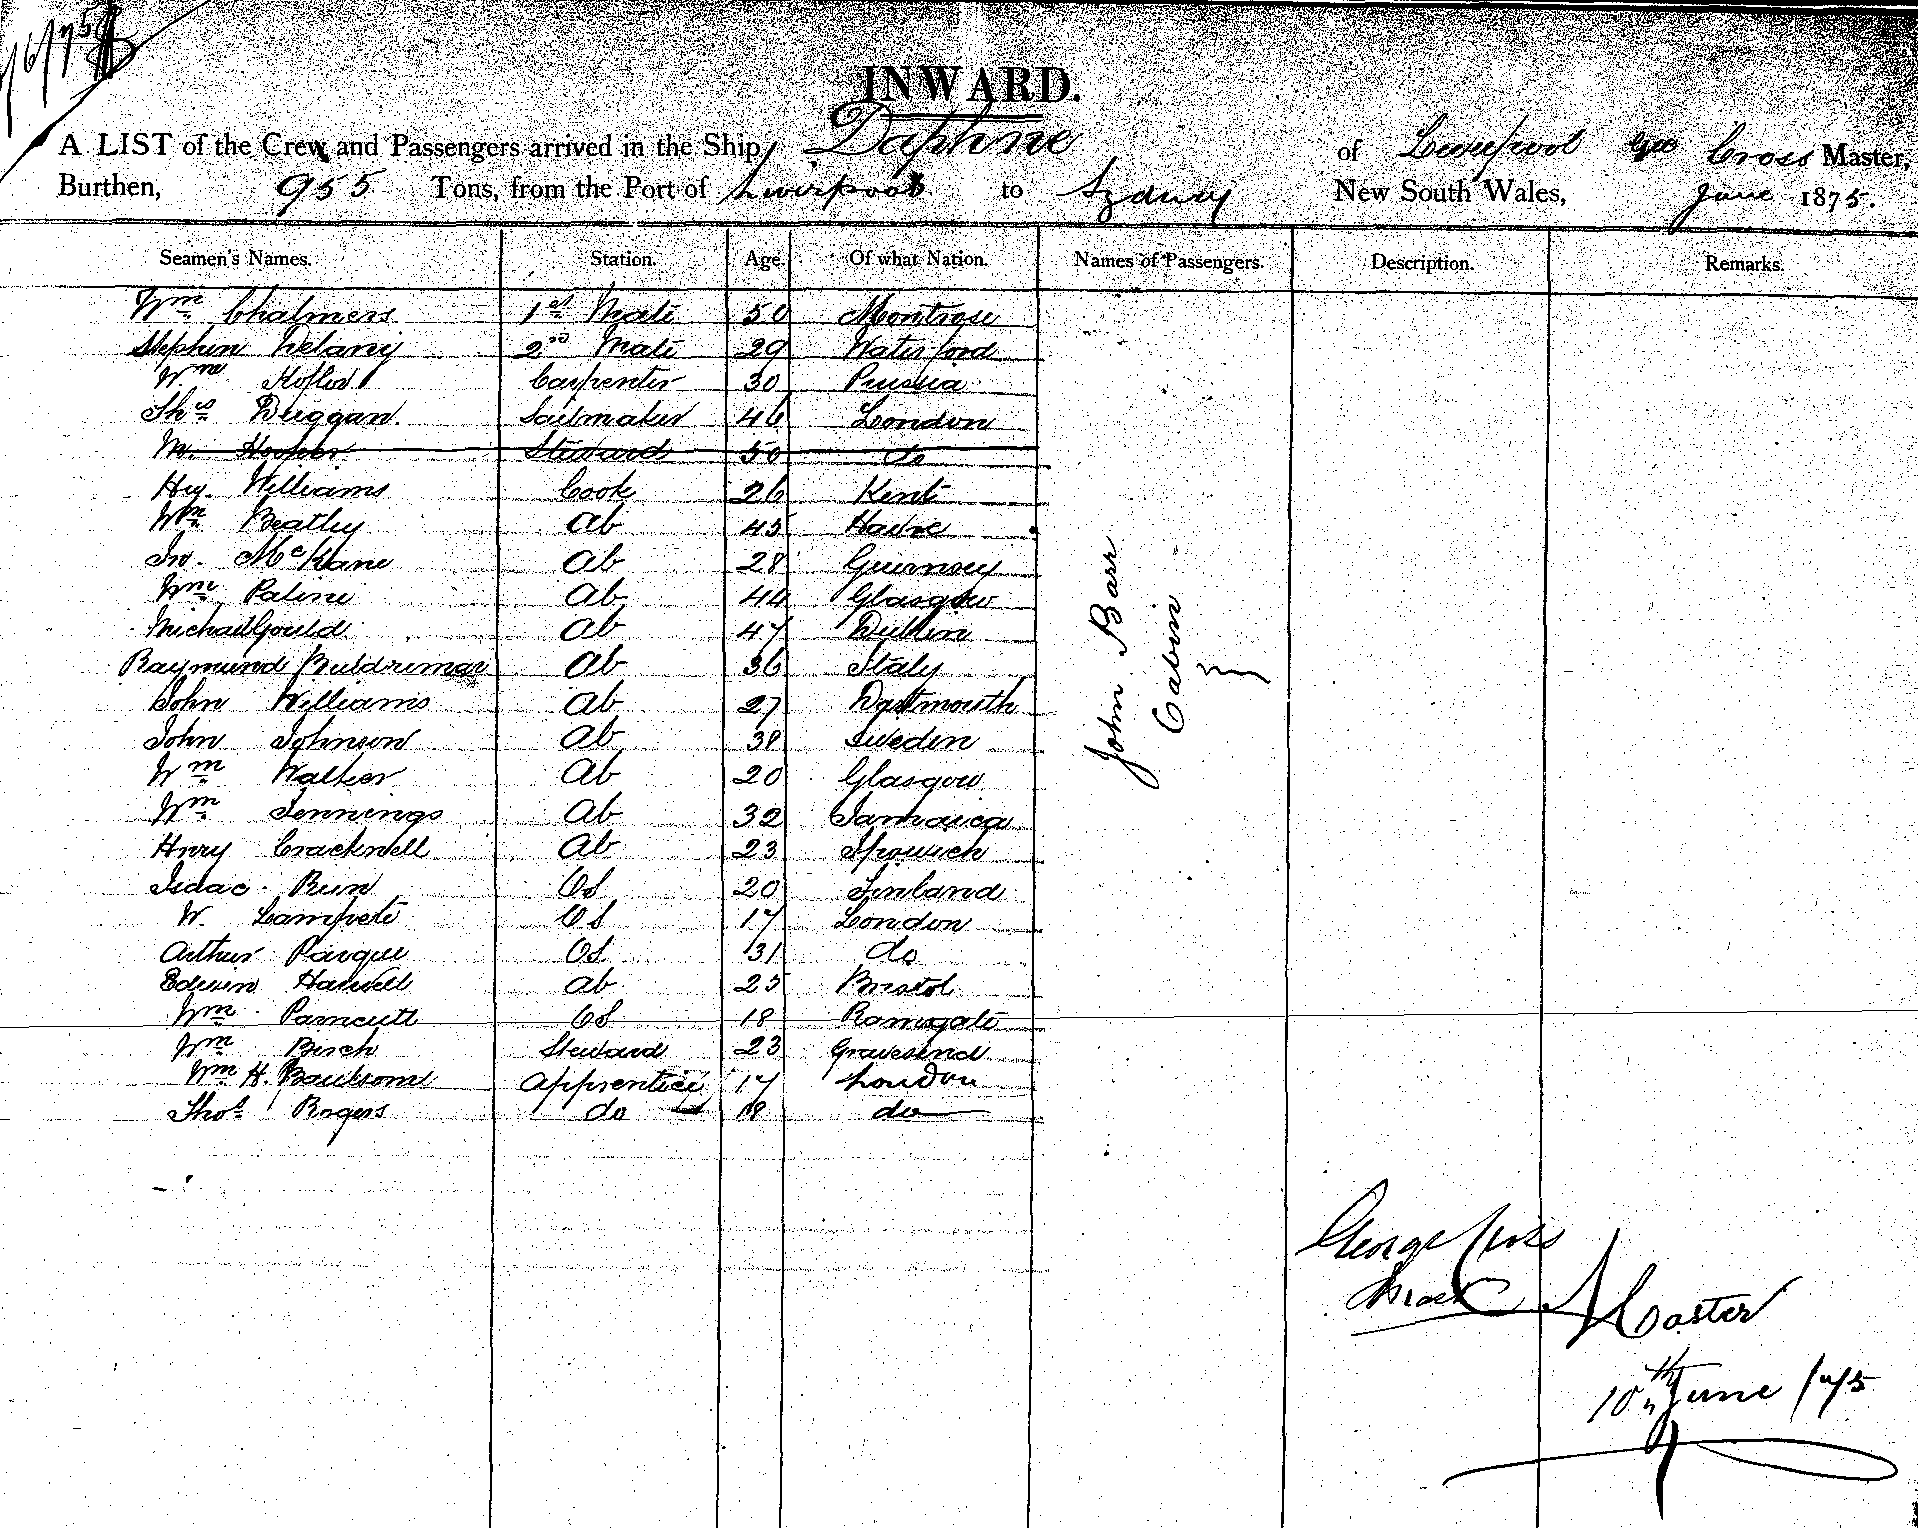 INWARD.
A LIST of the Crew and Passengers arrived in the Ship Daphne of Liverpool Geo Cross Master,
Burthen, 955 Tons, from the Port of Liverpool to Sydney New South Wales, June 1875.
Seamen's Names. Station. Age Of what Nation. Names of Passengers. Description. Remarks.
Wm Chalmers 1st Mate 50 Montrose
Stephen Delany 2nd Mate 29 Waterford
Wm Carpenter 30 Prussia
Ths Duggan. Sailmaker 46 London
M. Hooper Steward 50 do
Hy. Williams Cook 26 Kent
Wm Beatley Ab 45 Havre
Jno. McKane Ab 28 Guernsey
Wm Paline Ab 44 Glasgow
Michael Gould Ab 47 Dublin
Raymund Ab 36 Italy
John Williams Ab 27 Dartmouth
John Johnson Ab 38 Sweden
Wm Walker Ab 20 Glasgow
Wm Jennings Ab 32 Jamaica
Hnry Cracknell Ab 23 Ipswich
Isaac Bun Os 20 Finland
W. Os 17 London
Arthur Os 31 do
Edwin Harwell ab 25 Bristol
Wm Parncutt Os 18 Ramsgate
Wm Birch Steward 23 Gravesend
Wm H. Apprentice 17 London
Thos Rogers do 18 do
John Barr
Cabin
George Cross
Master
10th June 1875